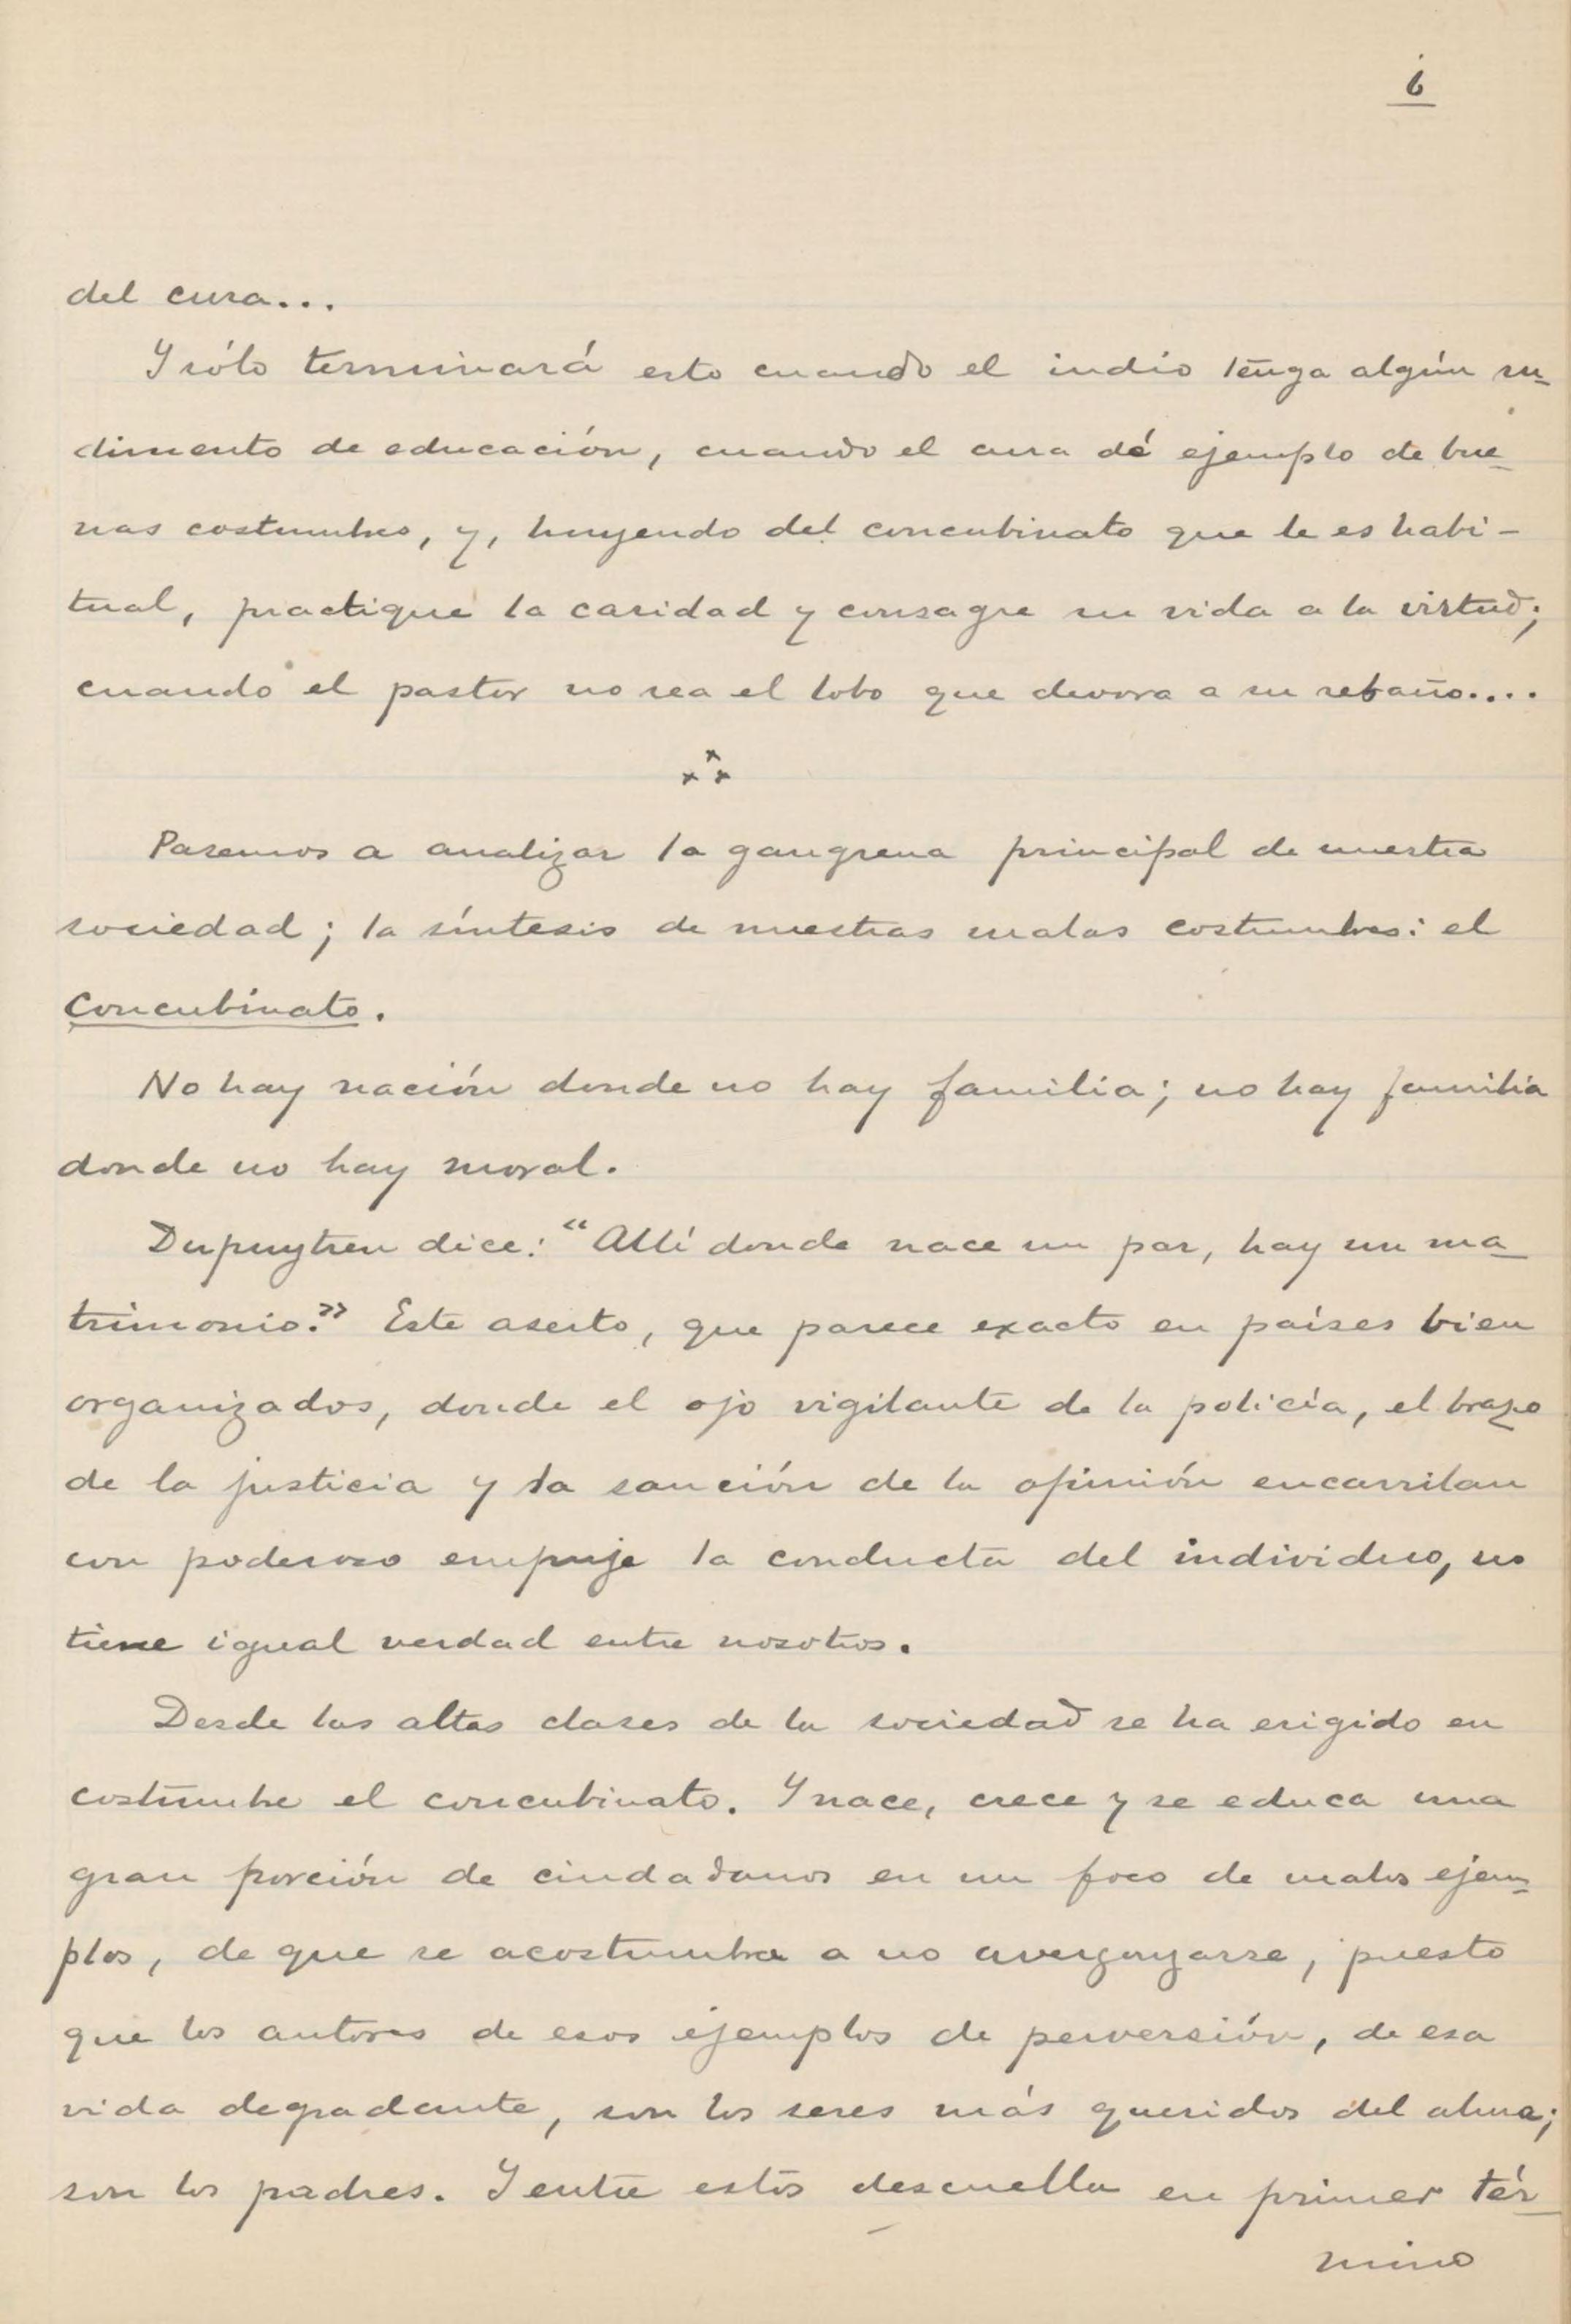 6
del cura...
Y sólo terminará esto cuando el indio tenga algún ru-
dimento de educación, cuando el cura dé ejemplo de bue-
nas costumbres, y, huyendo del concubinato que le es habi-
tual, practique la caridad y consagre su vida a la virtud;
cuando el pastor no sea el lobo que devora a su rebaño....
x x x
Pasemos a analizar la gangrena principal de nuestra
sociedad; la síntesis de nuestras malas costumbres: el
Concubinato.
No hay nación donde no hay familia; no hay familia
donde no hay moral.
Dupuytren dice: "Allí donde nace un par, hay un ma-
trimonio." Este aserto, que parece exacto en países bien
organizados, donde el ojo vigilante de la policía, el brazo
de la justicia y la sanción de la opinión encarrilan
con poderoso empuje la conducta del individuo, no
tiene igual verdad entre nosotros.
Desde las altas clases de la sociedad se ha erigido en
costumbre el concubinato. Y nace, crece y se educa una
gran porción de ciudadanos en un foco de malos ejem-
plos, de que se acostumbra a no avergonzarse, puesto
que los autores de esos ejemplos de perversión, de esa
vida degradante, son los seres más queridos del alma;
son los padres. Y entre estos descuella en primer tér-
mino